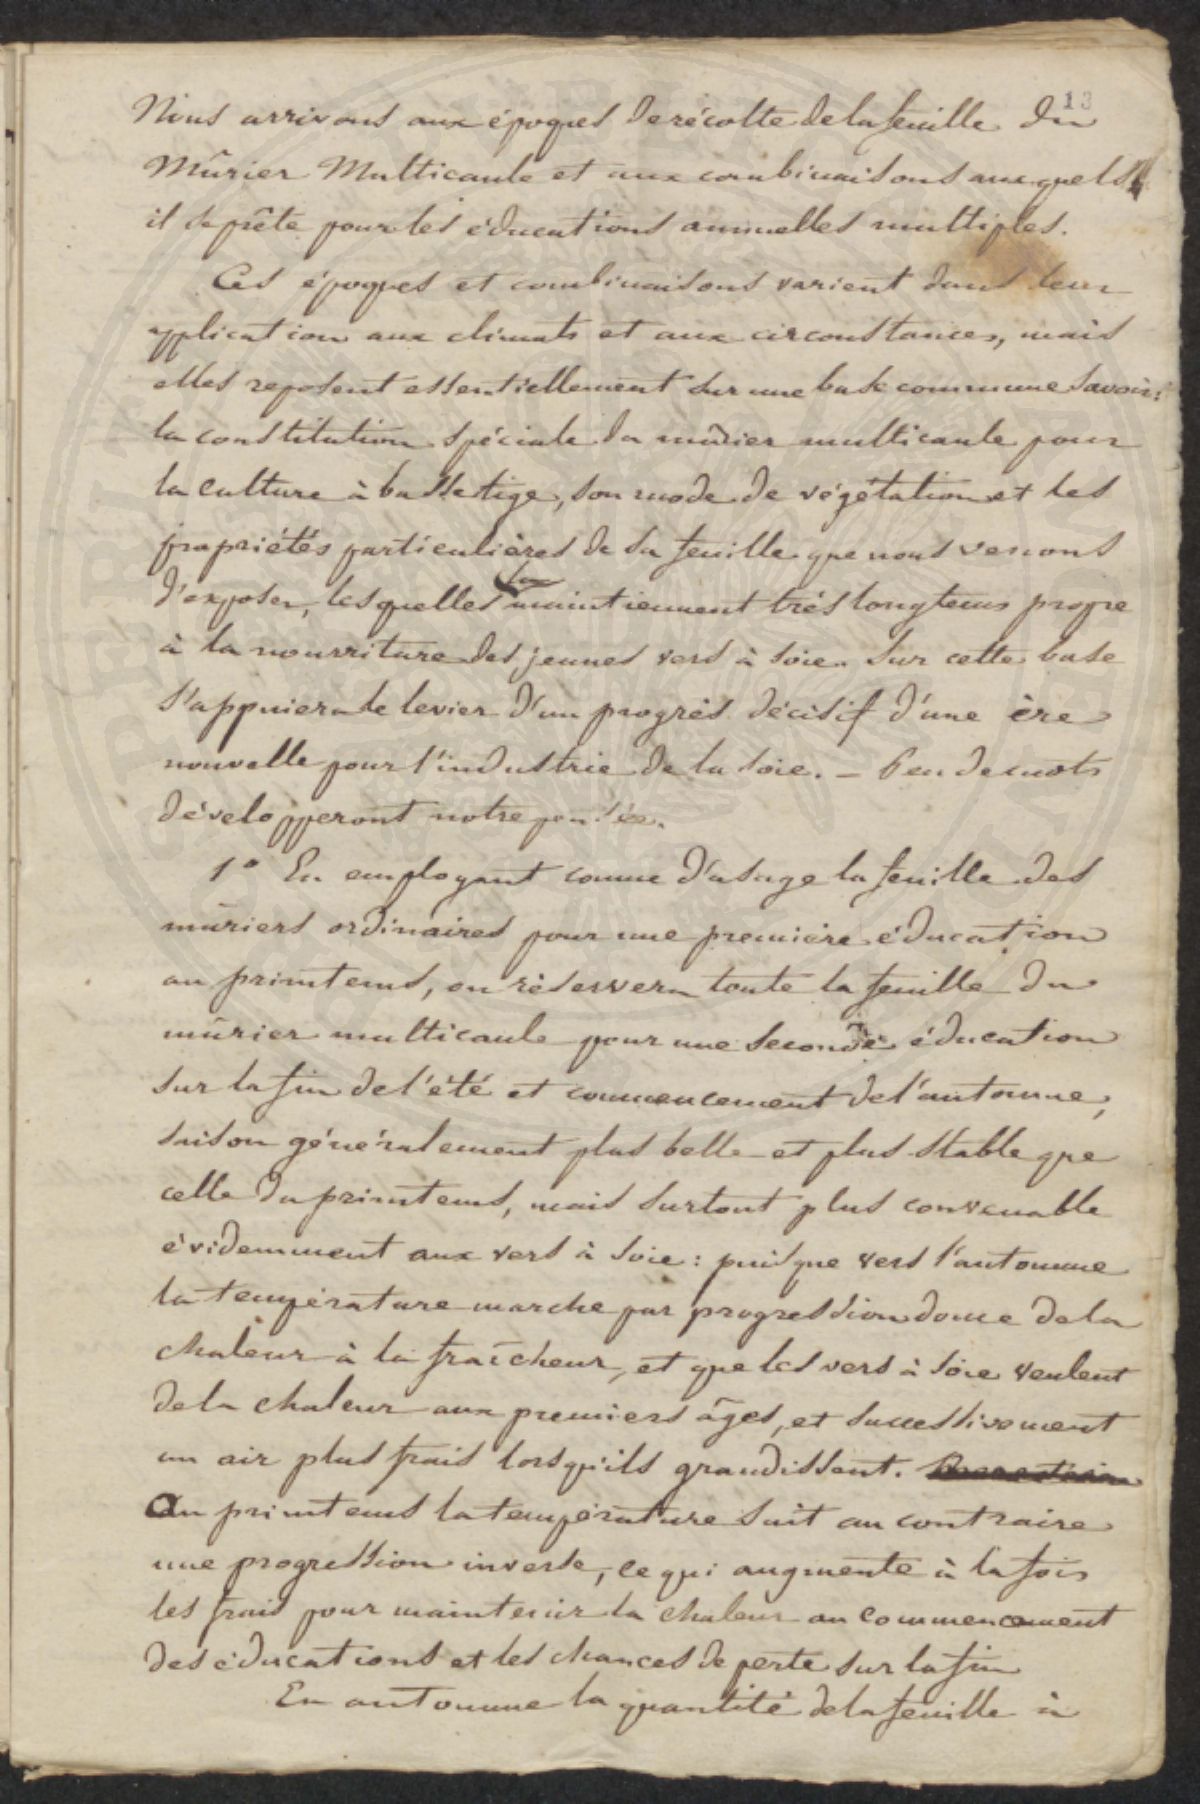 13
Nous arrivons aux époques de récolte de la feuille du
Mûrier Multicaule et aux combinaisons auxquels
il se prête pour les éducations annuelles multiples.
Ces époques et combinaisons varient dans leur
application aux climats et aux circonstances, mais
elles reposent essentiellement sur une base commune savoir:
la constitution spéciale du mûrier multicaule pour
la culture à basse tige, son mode de végétation et les
propriétés particulières de sa feuille que nous venons
d'exposer, lesquelles la maintiennent très longtems propre
à la nourriture des jeunes vers à soie. Sur cette base
s'appuiera le levier d'un progrès décisif d'une ère
nouvelle pour l'industrie de la soie. – Peu de mots
développeront notre pensée.
1° En employant comme d'usage la feuille des
mûriers ordinaires pour une première éducation
au printems, on réservera toute la feuille du
mûrier multicaule pour une seconde éducation
sur la fin de l'été et commencement de l'automne,
saison généralement plus belle et plus stable que
celle du printems, mais surtout plus convenable
évidemment aux vers à soie: puisque vers l'automne
la température marche par progression douce de la
chaleur à la fraîcheur, et que les vers à soie veulent
de la chaleur aux premiers âges, et successivement
un air plus frais lorsqu'ils grandissent.
Au printems la température suit au contraire
une progression inverse, ce qui augmente à la fois
les frais pour maintenir la chaleur au commencement
des éducations et les chances de perte sur la fin
En automne la quantité de la feuille à